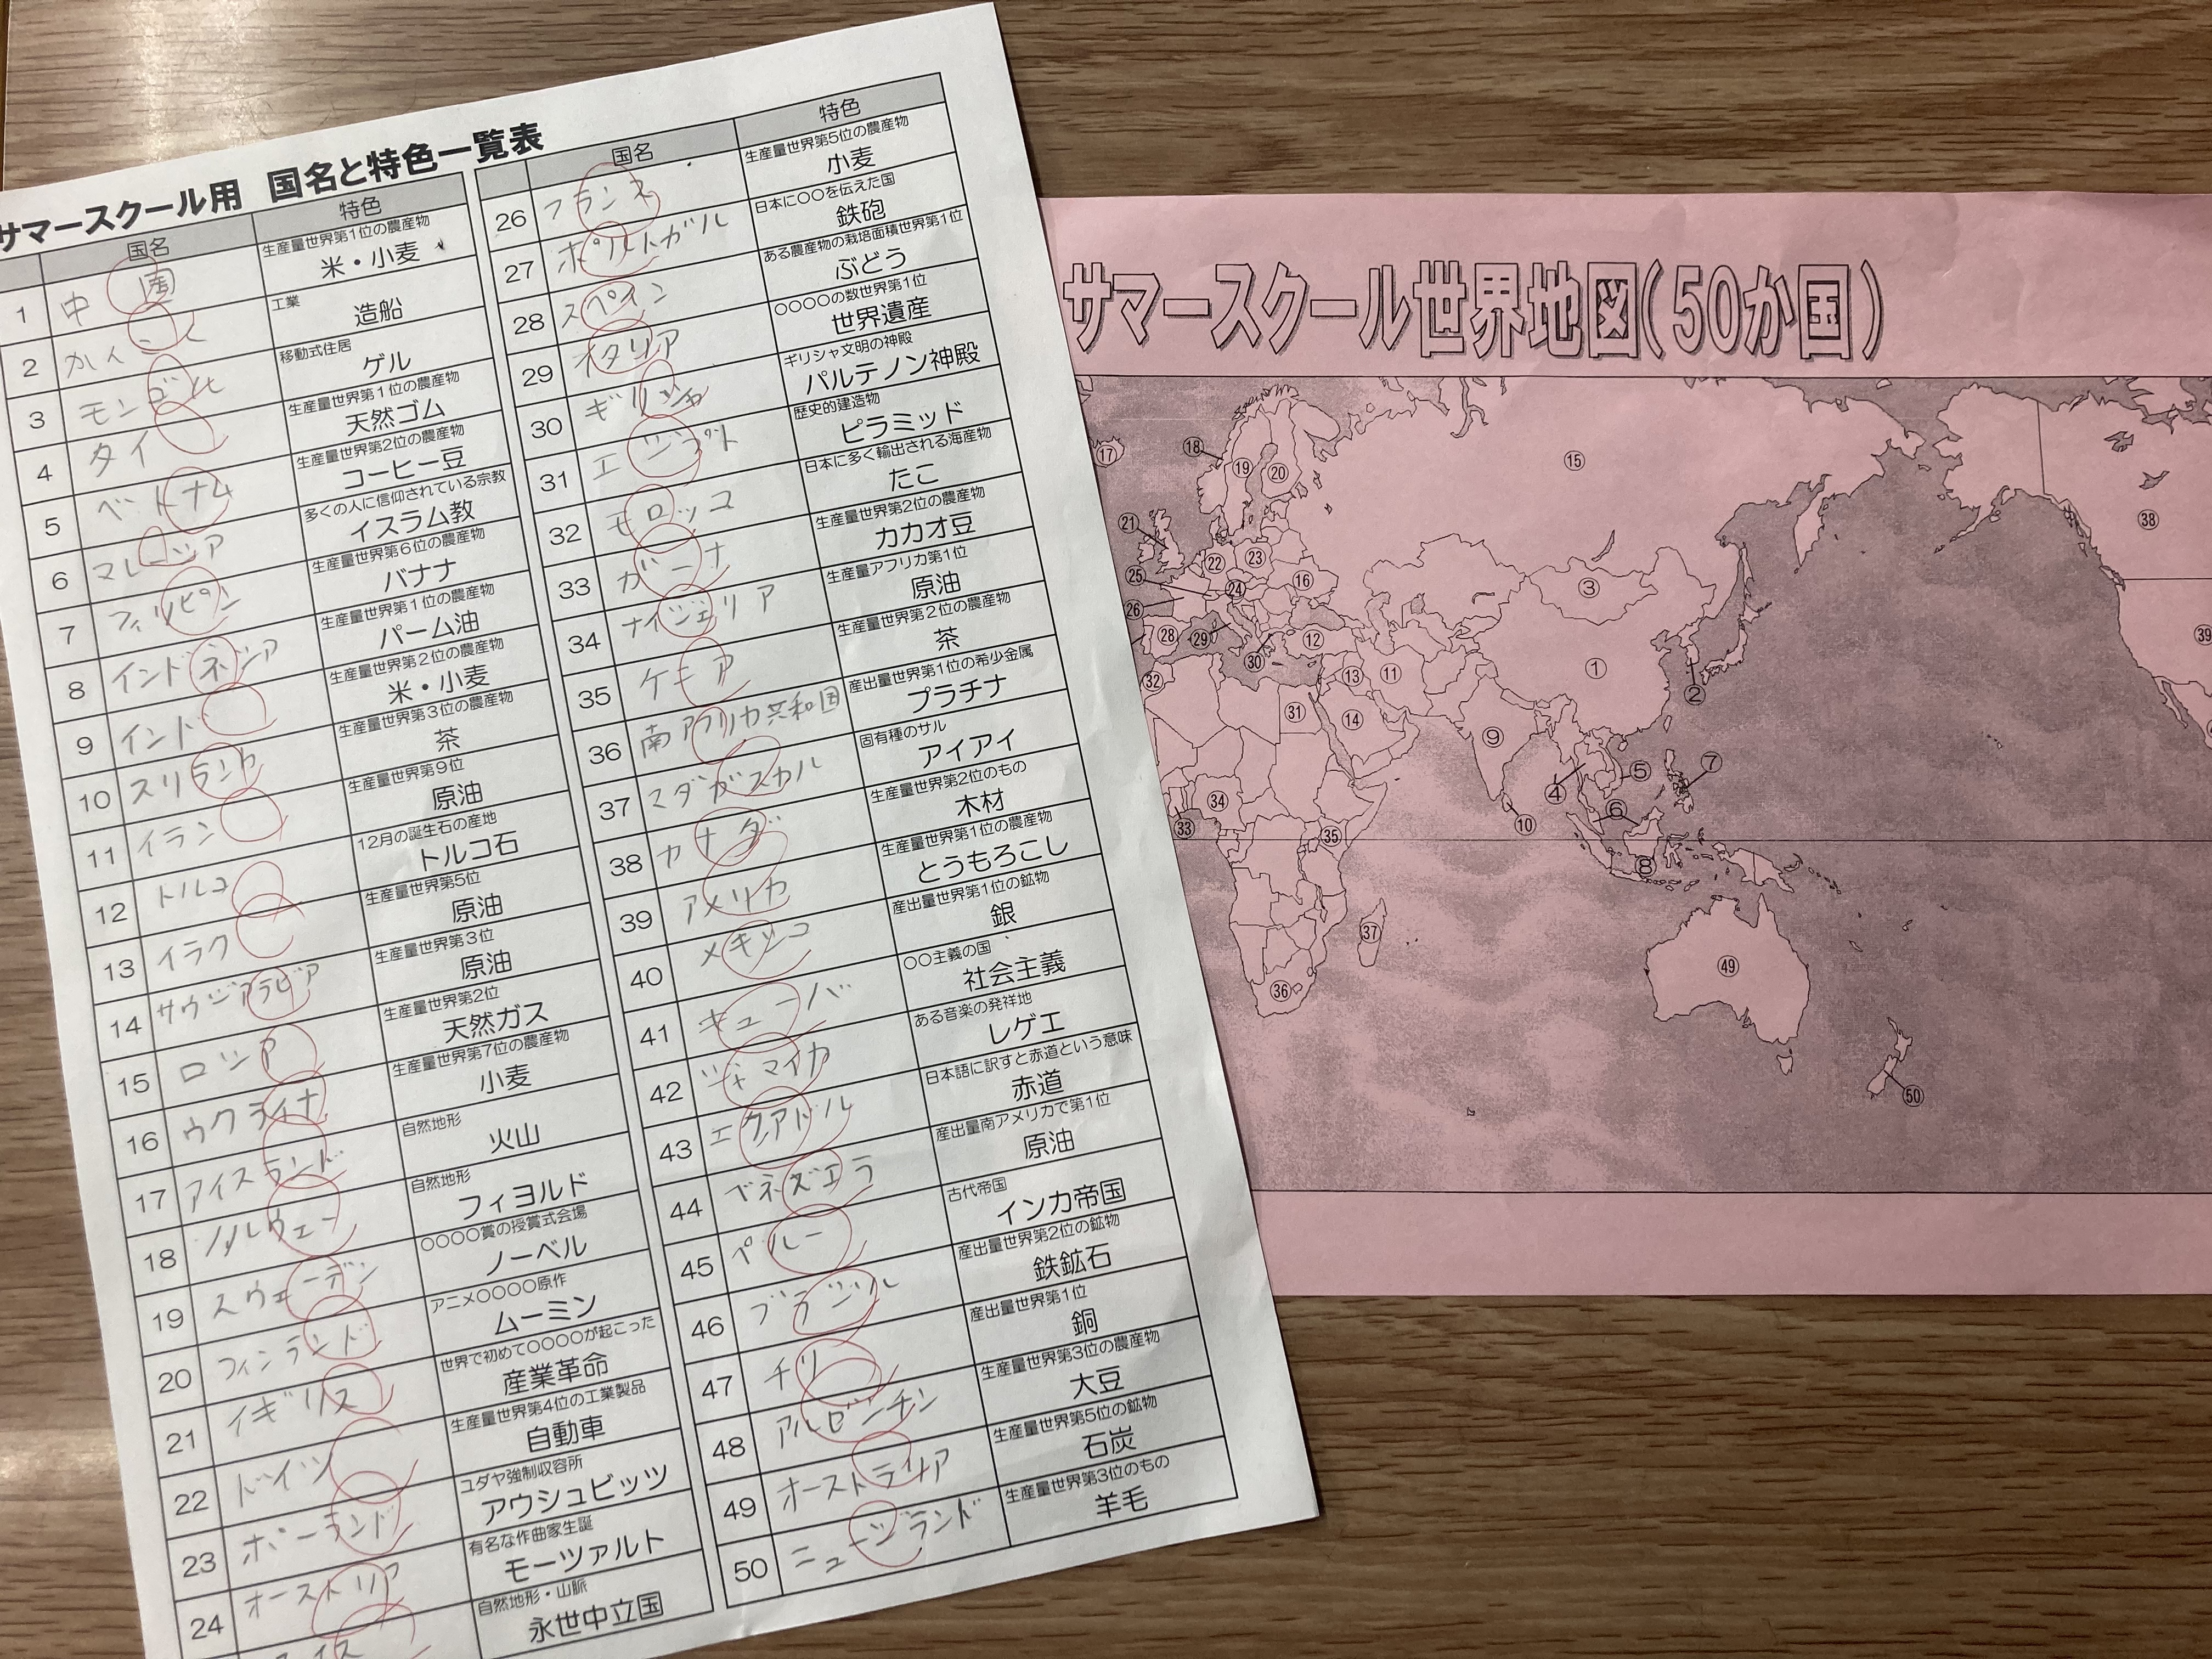 サマースクール用 国名と特色一覧表
国名 特色
1 中国 生産量世界第1位の農産物 米・小麦
2 かんこく 工業 造船
3 モンゴル 移動式住居 ゲル
4 タイ 生産量世界第1位の農産物 天然ゴム
5 ベトナム 生産量世界第2位の農産物 コーヒー豆
6 マレーシア 多くの人に信仰されている宗教 イスラム教
7 フィリピン 生産量世界第6位の農産物 バナナ
8 インドネシア 生産量世界第1位の農産物 パーム油
9 インド 生産量世界第2位の農産物 米・小麦
10 スリランカ 生産量世界第3位の農産物 茶
11 イラン 生産量世界第9位 原油
12 トルコ 12月の誕生石の産地 トルコ石
13 イラク 生産量世界第5位 原油
14 サウジアラビア 生産量世界第3位 原油
15 ロシア 生産量世界第2位 天然ガス
16 ウクライナ 生産量世界第7位の農産物 小麦
17 アイスランド 自然地形 火山
18 ノルウェー 自然地形 フィヨルド
19 スウェーデン 〇〇〇〇賞の授賞式会場 ノーベル
20 フィンランド アニメ〇〇〇〇原作 ムーミン
21 イギリス 世界で初めて〇〇〇〇が起こった 産業革命
22 ドイツ 生産量世界第4位の工業製品 自動車
23 ポーランド ユダヤ強制収容所 アウシュビッツ
24 オーストリア 有名な作曲家生誕 モーツァルト
スイス 自然地形・山脈 永世中立国
国名 特色
26 フランス 生産量世界第5位の農産物 小麦
27 ポルトガル 日本に〇〇を伝えた国 鉄砲
28 スペイン ある農産物の栽培面積世界第1位 ぶどう
29 イタリア 〇〇〇〇の数世界第1位 世界遺産
30 ギリシャ ギリシャ文明の神殿 パルテノン神殿
31 エジプト 歴史的建造物 ピラミッド
32 モロッコ 日本に多く輸出される海産物 たこ
33 ガーナ 生産量世界第2位の農産物 カカオ豆
34 ナイジェリア 生産量アフリカ第1位 原油
35 ケニア 生産量世界第2位の農産物 茶
36 南アフリカ共和国 産出量世界第1位の希少金属 プラチナ
37 マダガスカル 固有種のサル アイアイ
38 カナダ 生産量世界第2位のもの 木材
39 アメリカ 生産量世界第1位の農産物 とうもろこし
40 メキシコ 産出量世界第1位の鉱物 銀
41 キューバ 〇〇主義の国 社会主義
42 ジャマイカ ある音楽の発祥地 レゲエ
43 エクアドル 日本語に訳すと赤道という意味 赤道
44 ベネズエラ 産出量南アメリカで第1位 原油
45 ペルー 古代帝国 インカ帝国
46 ブラジル 産出量世界第2位の鉱物 鉄鉱石
47 チリ 産出量世界第1位 銅
48 アルゼンチン 生産量世界第3位の農産物 大豆
49 オーストラリア 生産量世界第5位の鉱物 石炭
50 ニュージランド 生産量世界第3位のもの 羊毛
サマースクール世界地図(50か国)
⑰ ⑱ ⑲ ⑳ ⑮ ㊳
㉑ ㉒ ㉓ ㉕ ㉔ ⑯ ③
㉖ ㉘ ㉙ ㉚ ⑫ ㊴
㉜ ⑬ ⑪ ① ②
㉛ ⑭ ⑨
㉞ ④ ⑤ ⑦
㉝ ㉟ ⑩ ⑥ ⑧
㊲ ㊾
㊱
㊿